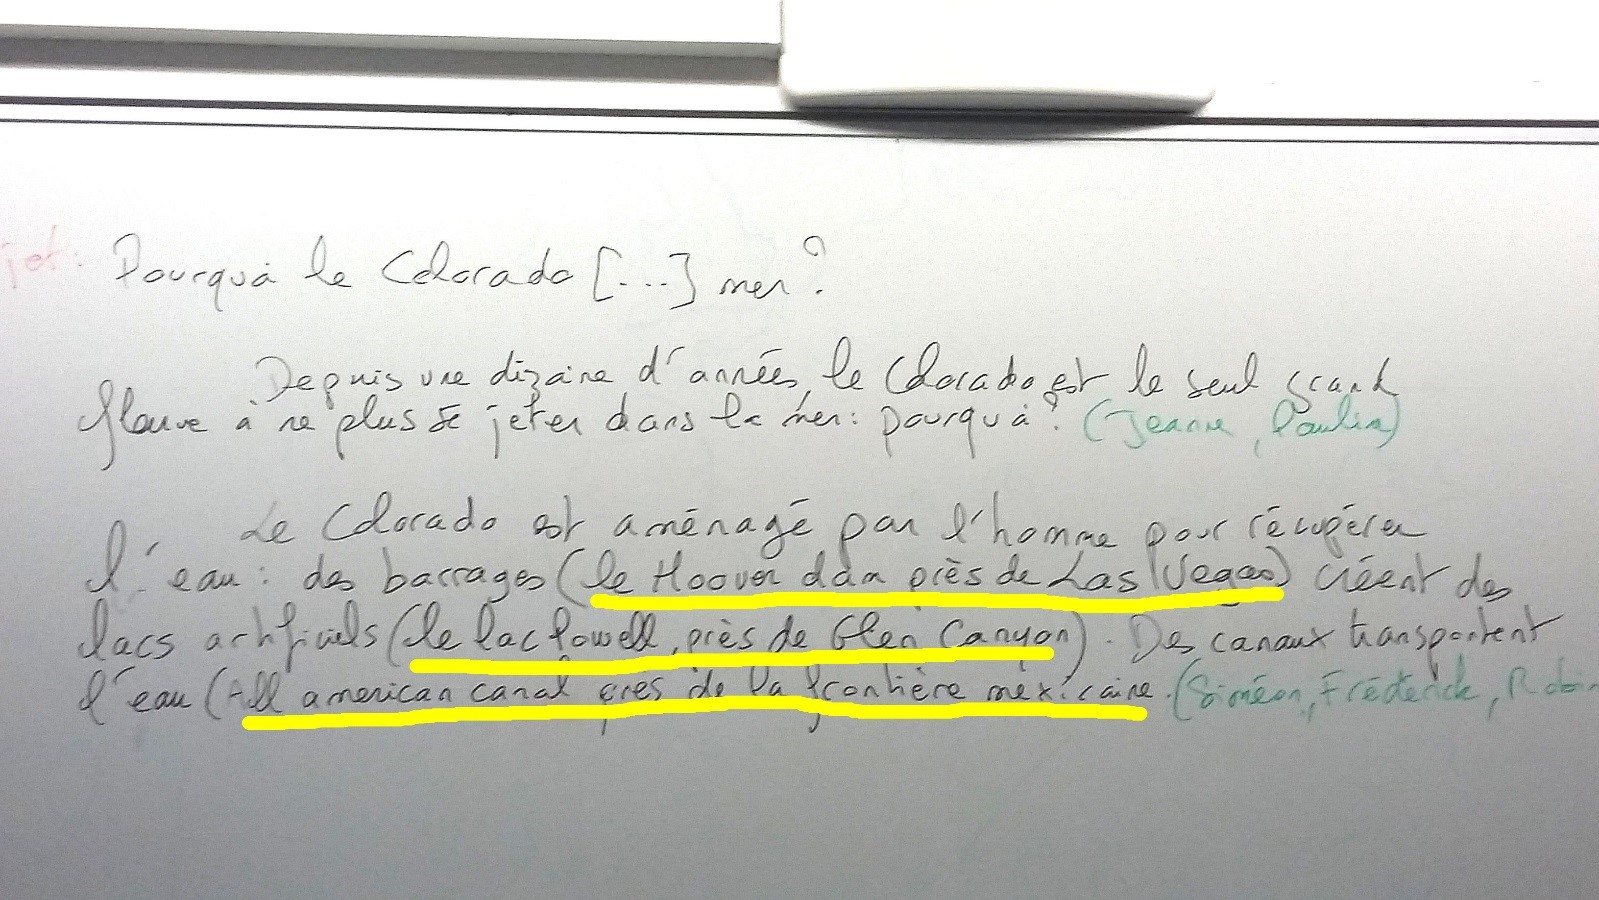 jet: Pourquoi le Colorado [...] mer?
Depuis une dizaine d'années, le Colorado est le seul grand
fleuve à ne plus se jeter dans la mer: pourquoi? (Jeanne, Paulin)
Le Colorado est aménagé par l'homme pour récupérer
l'eau: des barrages (le Hoover dam près de Las Vegas) créent des
lacs artificiels (le lac Powell, près de Glen Canyon). Des canaux transportent
l'eau (All american canal près de la frontière mexicaine. (Siméon, Fréderick, Robin